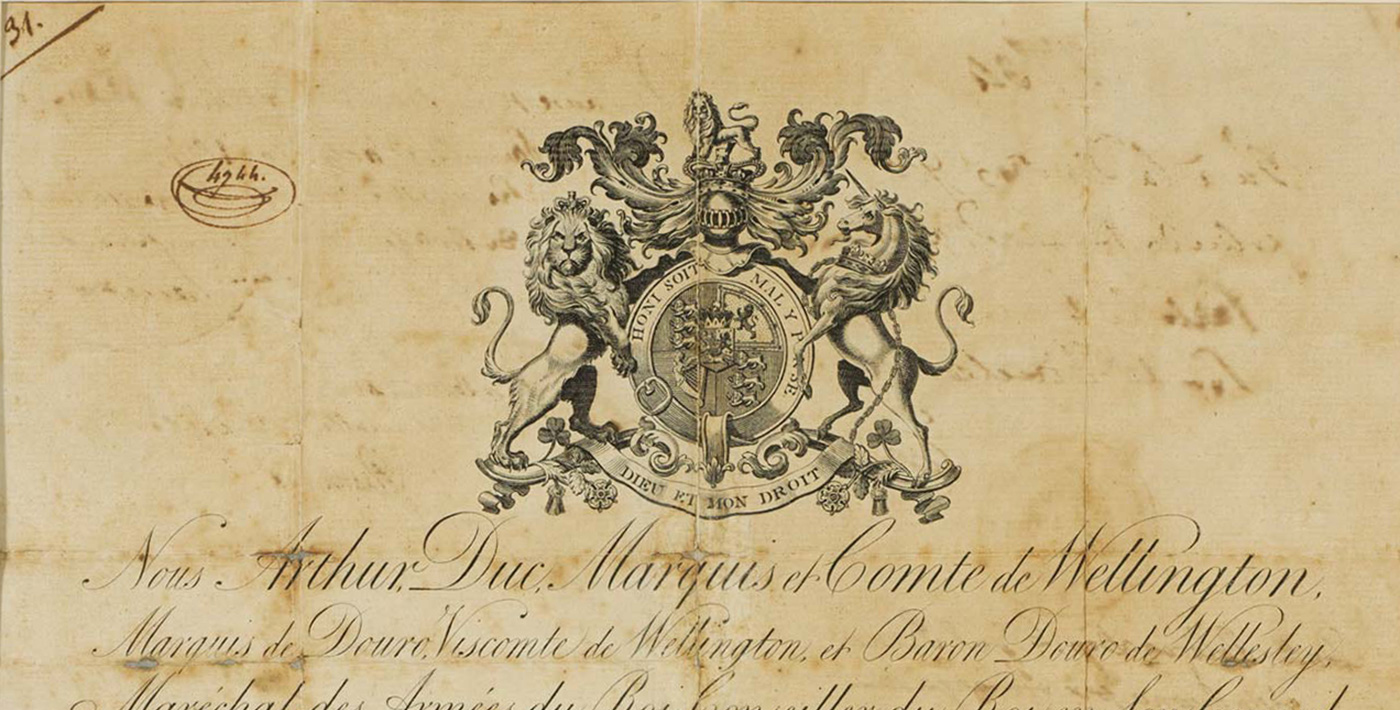 31.
4944.
HONI SOIT MAL Y PENSE
DIEU ET MON DROIT
Nous Arthur, Duc, Marquis et Comte de Wellington,
Marquis de Douro, Viscomte de Wellington, et Baron Douro de Wellesley,
Maréchal des Armées du Roi, Conseiller du Roi en